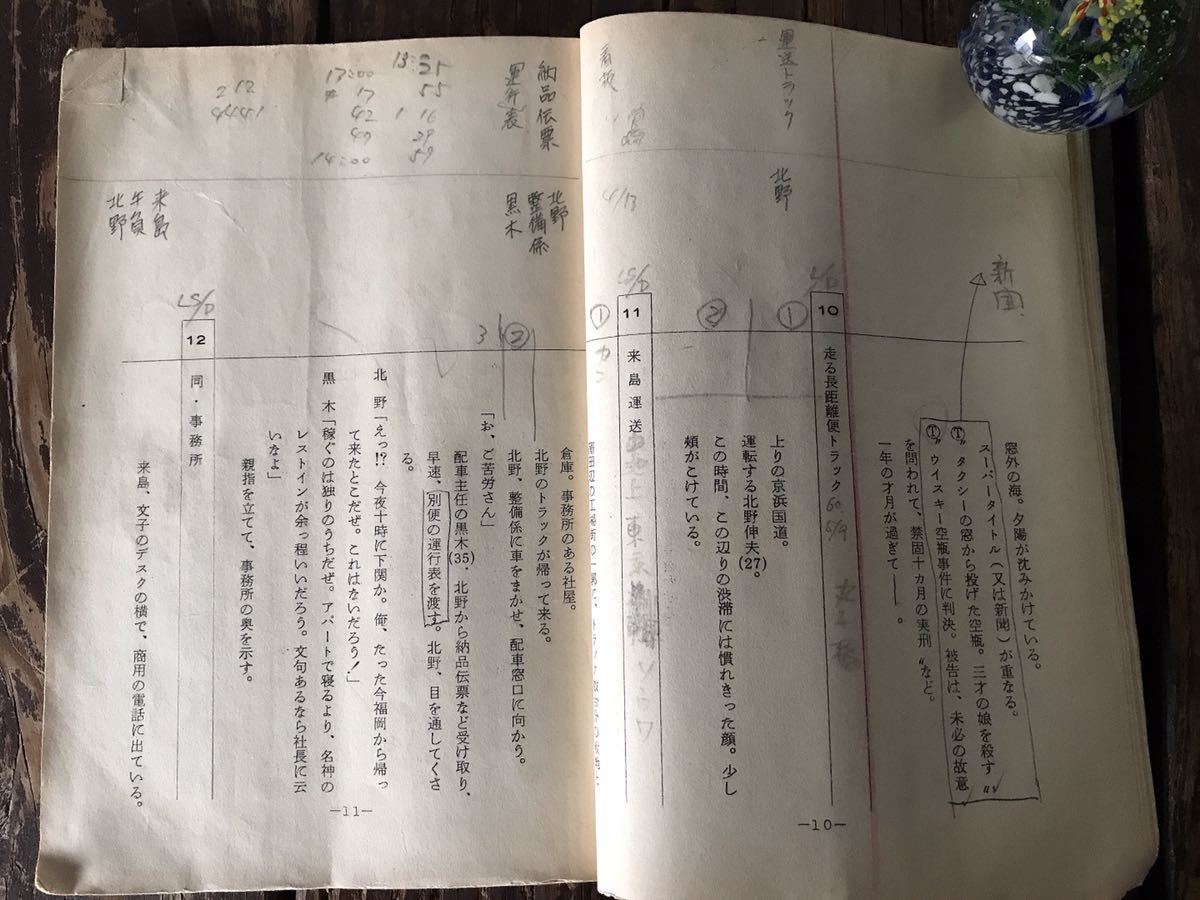 窓外の海。夕陽が沈みかけている。
スーパータイトル(又は新聞)が重なる。
①〝タクシーの窓から投げた空瓶。三才の娘を殺す〟
①〝ウイスキー空瓶事件に判決。被告は、未必の故意
を問われて、禁固十カ月の実刑〟など。
一年の才月が過ぎて――。
新聞
運送トラック
北野
L/D
10 走る長距離便トラック
①
上りの京浜国道。
運転する北野伸夫(27)。
②
この時間、この辺りの渋滞には慣れきった顔。少し
頬がこけている。
看板
4/13
LS/D
11 来島運送
①
―10―
納品伝票
運行表
北野
整備係
黒木
倉庫。事務所のある社屋。
北野のトラックが帰って来る。
②
北野、整備係に車をまかせ、配車窓口に向かう。
3
「お、ご苦労さん」
配車主任の黒木(35)、北野から納品伝票など受け取り、
早速、別便の運行表を渡す。北野、目を通してくさ
る。
北野「えっ!? 今夜十時に下関か。俺、たった今福岡から帰っ
て来たとこだぜ。これはないだろう!」
黒木「稼ぐのは独りのうちだぜ。アパートで寝るより、名神の
レストインが余っ程いいだろう。文句あるなら社長に云
いなよ」
親指を立てて、事務所の奥を示す。
来島
北野
LS/D
12 同・事務所
来島、文子のデスクの横で、商用の電話に出ている。
―11―